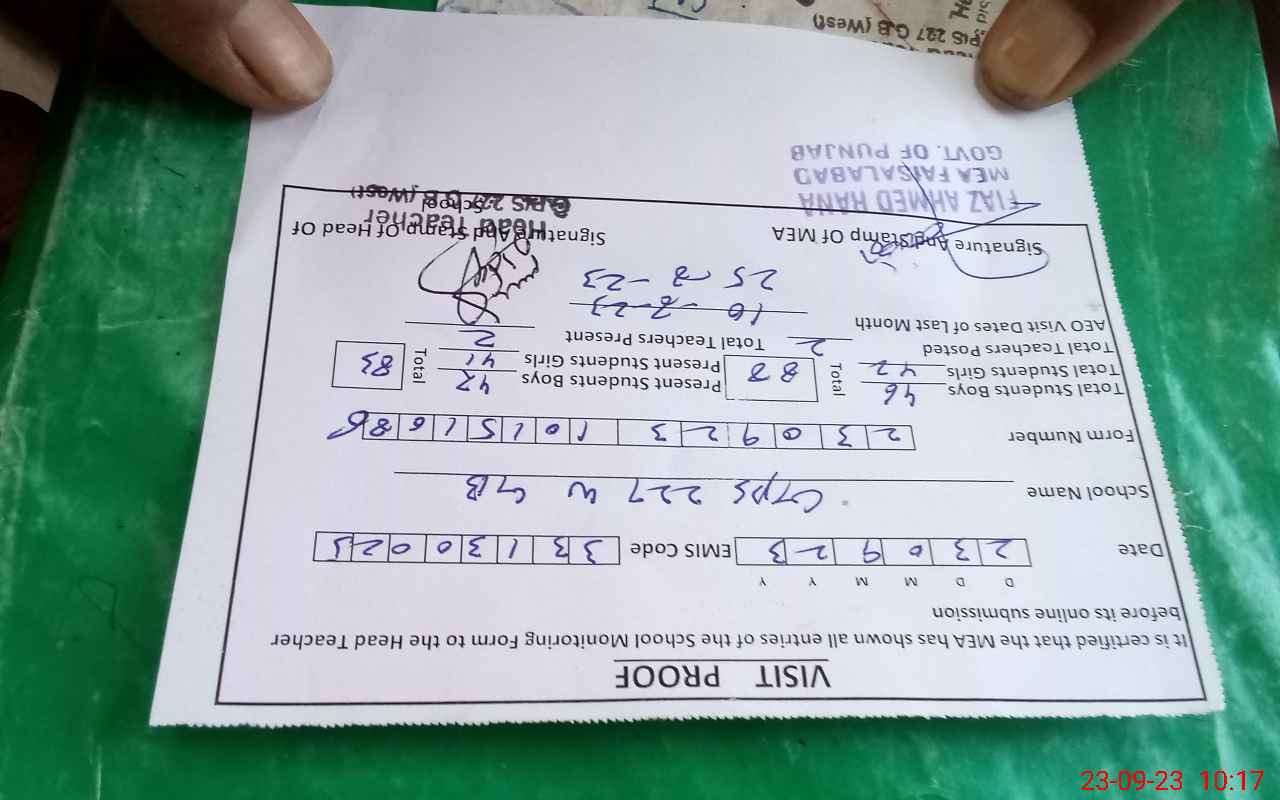 VISIT PROOF
It is certified that the MEA has shown all entries of the School Monitoring Form to the Head Teacher
before its online submission
D D M M Y Y
Date 2 3 0 9 2 3 EMIS Code 3 3 1 3 0 0 2 5
School Name GPS 227 W GB
Form Number 2 3 0 9 2 3 1 0 1 5 1 6 8
Total Students Boys 46 Total 88 Present Students Boys 42 Total 83
Total Students Girls 42 Present Students Girls 41
Total Teachers Posted 2 Total Teachers Present 2
AEO Visit Dates of Last Month 10-8-23
25-8-23
Signature And Stamp Of MEA Signature And Stamp Of Head Of
School
FIAZ AHMED RANA
MEA FAISALABAD
GOVT. OF PUNJAB
Head Teacher
G.P/S 227 G.B (West)
P/S 227 G.B (West)
23-09-23 10:17